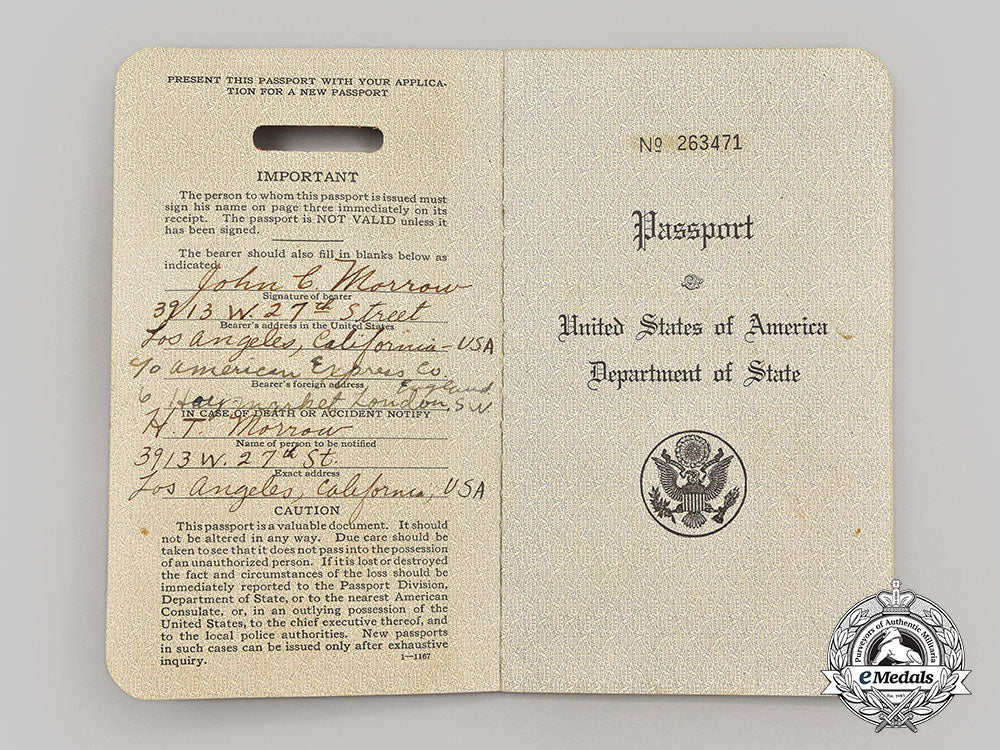 PRESENT THIS PASSPORT WITH YOUR APPLICA-
TION FOR A NEW PASSPORT
IMPORTANT
The person to whom this passport is issued must
sign his name on page three immediately on its
receipt. The passport is NOT VALID unless it
has been signed.
The bearer should also fill in blanks below as
indicated
John C. Morrow
Signature of bearer
3913 W. 27th Street
Bearer's address in the United States
Los Angeles, California - USA
c/o American Express Co.
Bearer's foreign address
England
6 Haymarket London, S.W.
IN CASE OF DEATH OR ACCIDENT NOTIFY
H T. Morrow
Name of person to be notified
3913 W. 27th St.
Exact address
Los Angeles, California, USA
CAUTION
This passport is a valuable document. It should
not be altered in any way. Due care should be
taken to see that it does not pass into the possession
of an unauthorized person. If it is lost or destroyed
the fact and circumstances of the loss should be
immediately reported to the Passport Division,
Department of State, or to the nearest American
Consulate, or, in an outlying possession of the
United States, to the chief executive thereof, and
to the local police authorities. New passports
in such cases can be issued only after exhaustive
inquiry.
1—1167
No 263471
Passport
United States of America
Department of State
Purveyors of Authentic Militaria
eMedals